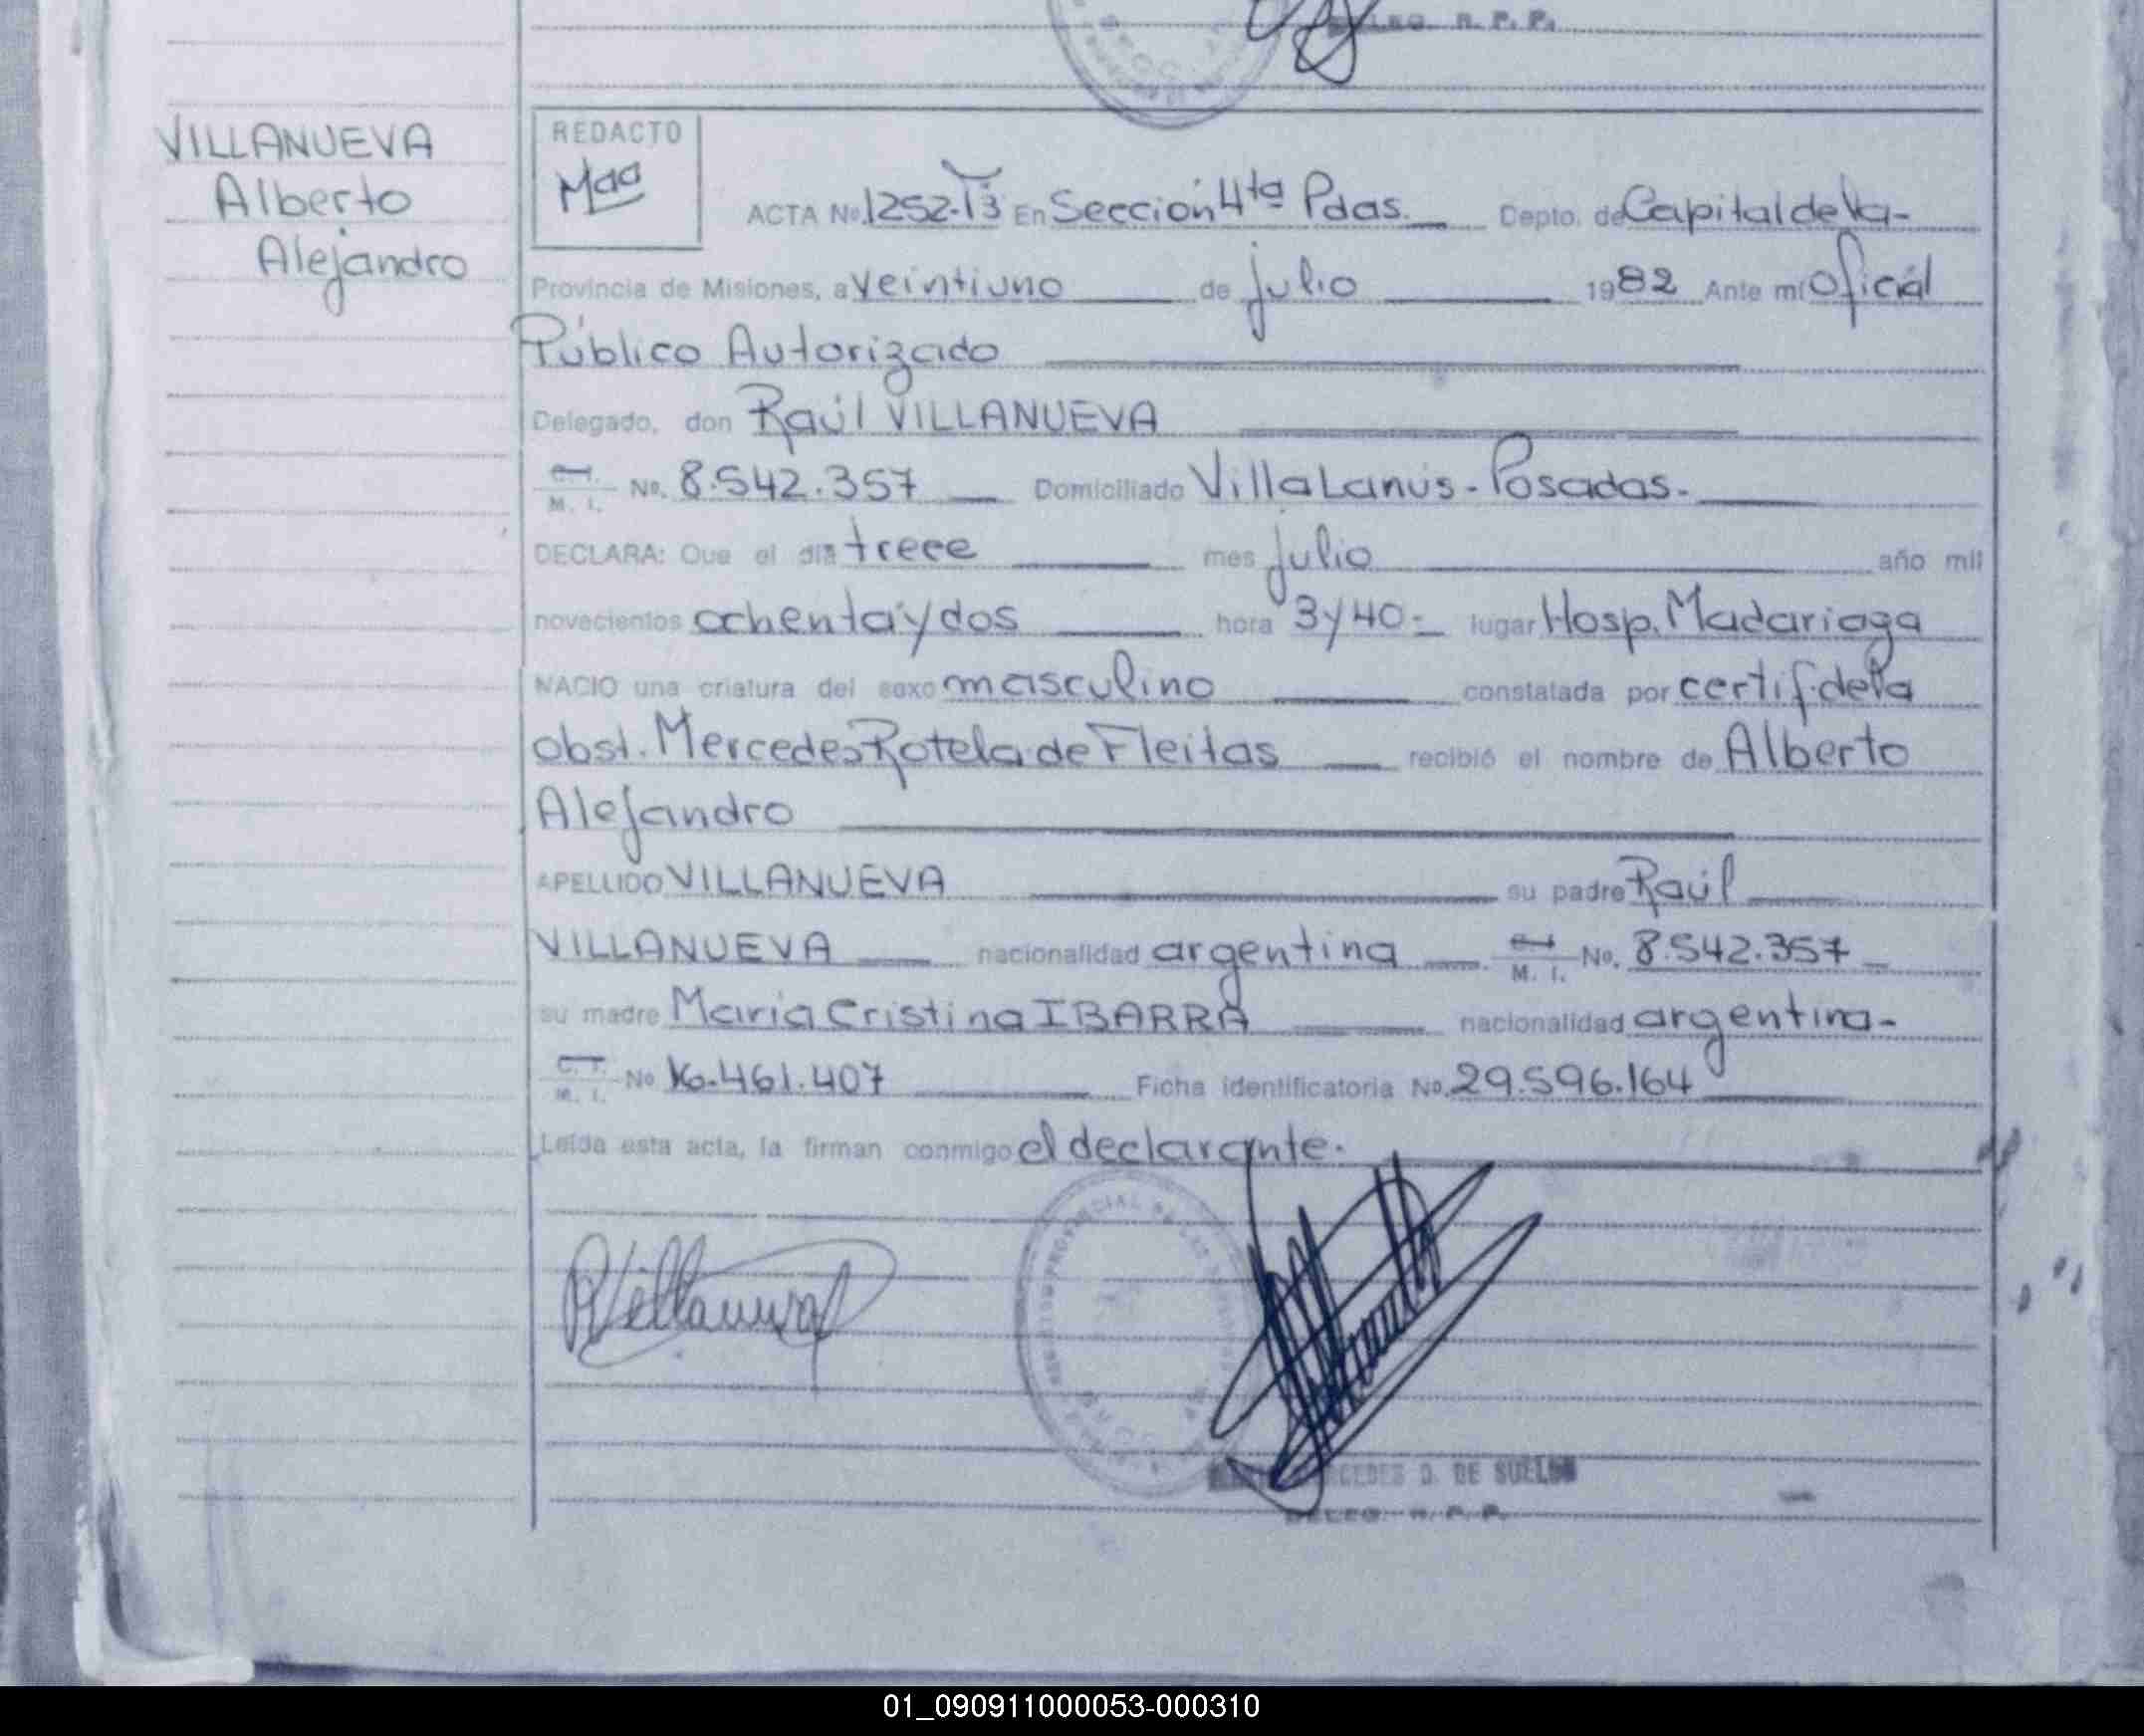 DELEG. R. P. P.
VILLANUEVA
Alberto
Alejandro
REDACTO
Mag
ACTA No. 1252-T3 En Sección 4ta Pdas. Depto. de Capital de la-
Provincia de Misiones, a veintiuno de julio 1982 Ante mí Oficiál
Público Autorizado
Delegado, don Raúl VILLANUEVA
C.I. M. I. No. 8.542.357 Domiciliado Villa Lanús - Posadas.
DECLARA: Que el día trece mes julio año mil
novecientos ochenta y dos hora 3 y 40 lugar Hosp. Madariaga
NACIO una criatura del sexo masculino constatada por certif. de la
obst. Mercedes Rotela de Fleitas recibió el nombre de Alberto
Alejandro
APELLIDO VILLANUEVA su padre Raúl
VILLANUEVA nacionalidad argentina C.I. M. I. No. 8.542.357
su madre María Cristina IBARRA nacionalidad argentina-
C. I. M. I. No 16.461.407 Ficha identificatoria No. 29.596.164
Leída esta acta, la firman conmigo el declarante.
RVillanueva
D. DE SUELDO
DELEG. R. P. P.
01_090911000053-000310